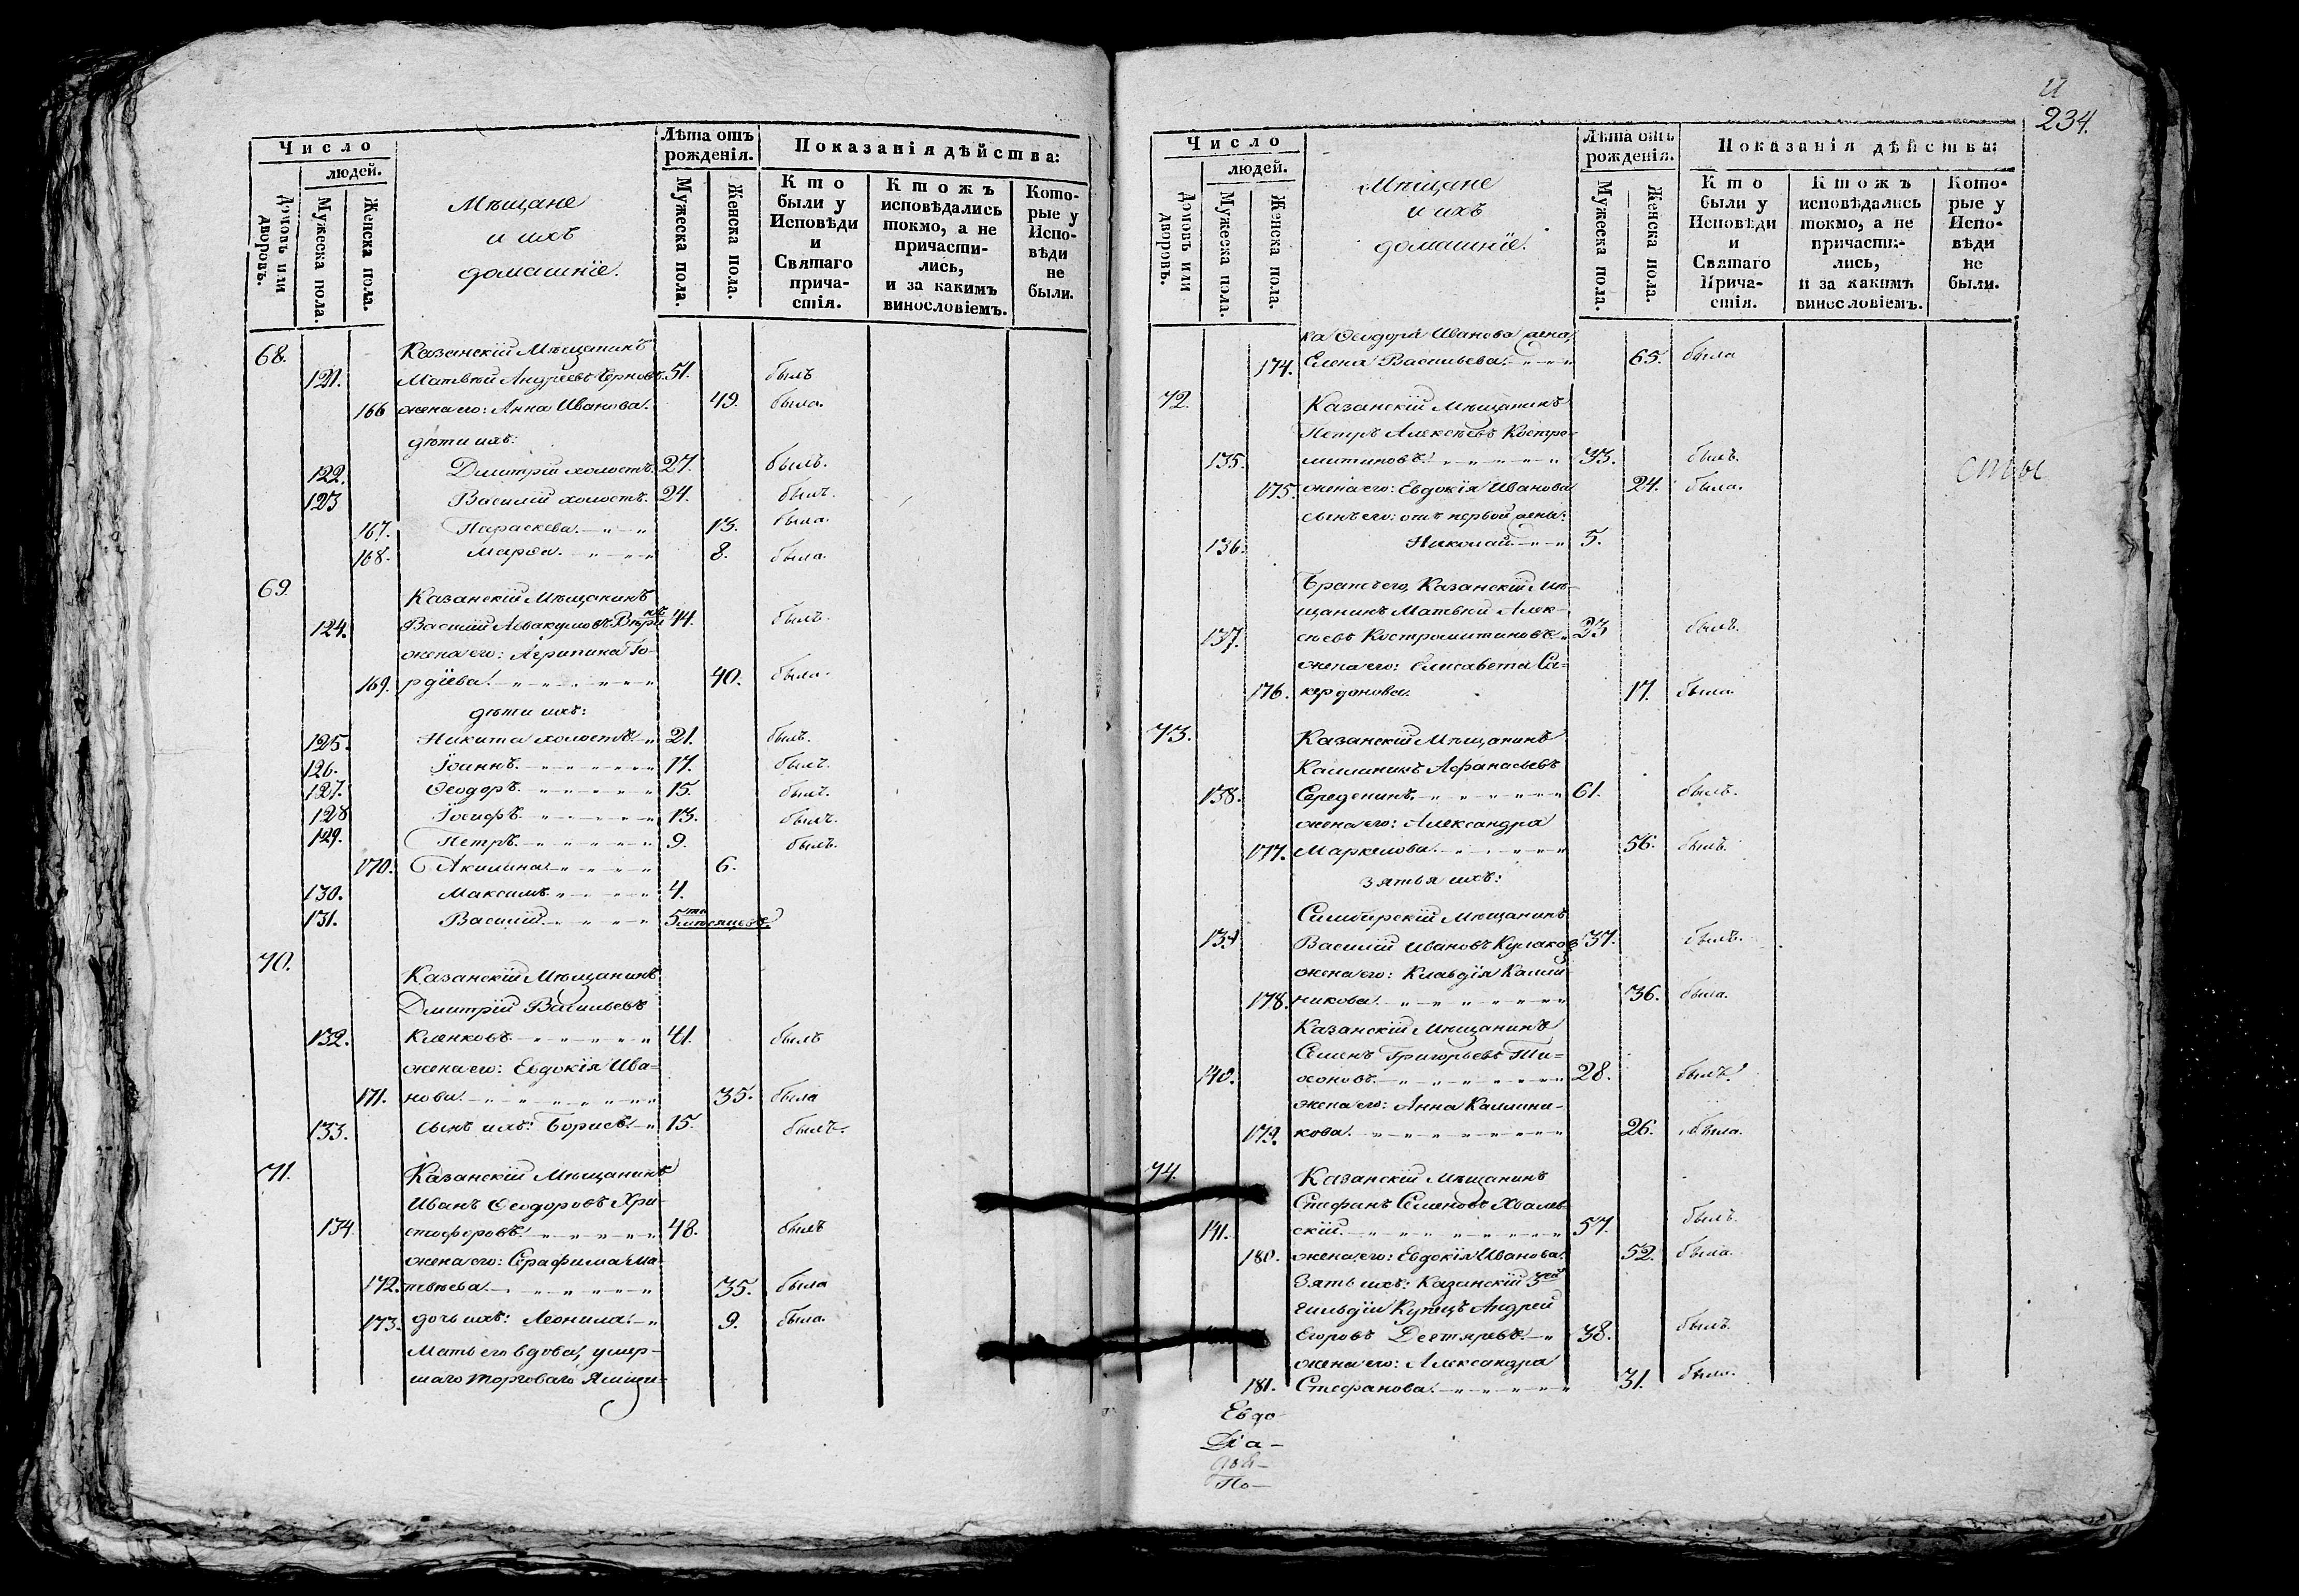 Число
людей.
Домовъ или дворовъ.
Мужеска пола.
Женска пола.
Мѣщане
и ихъ
домашніе.
Лѣта отъ
рожденія.
Мужеска пола.
Женска пола.
Показанія дѣйства:
Кто
были у
Исповѣди
и
Святаго
прича-
стія.
Ктожъ
исповѣдались
токмо, а не
причасти-
лись,
и за какимъ
винословіемъ.
Кото-
рые у
Испо-
вѣди
не
были.
68. Казанскій Мѣщанинъ
121. Матвѣй Андреевъ Черновъ. 51. былъ
166 жена его: Анна Иванова. 49. была.
дѣти ихъ:
122. Димитрій холостъ. 27. былъ.
123 Василій холостъ. 24. былъ.
167. Параскева. 13. была.
168. Марѳа. 8. была.
69. Казанскій Мѣщанинъ
124. Василій Аввакумовъ 44. былъ.
жена его: Агрипина Го-
169. рдіева. 40. была.
дѣти ихъ:
125. Никита холостъ. 21. былъ.
126. Іоаннъ. 17. былъ.
127. Ѳеодоръ. 15. былъ.
128 Іосифъ. 13. былъ.
129. Петръ. 9. былъ.
170. Акилина 6.
130. Максимъ. 4.
131. Василій. 5ти мѣсяцевъ.
70. Казанскій Мѣщанинъ
Димитрій Васильевъ
132. Кленковъ. 41. былъ
жена его: Евдокія Ива-
171. нова. 35. была
133. сынъ ихъ: Борисъ. 15. былъ.
71. Казанскій Мѣщанинъ
Иванъ Ѳеодоровъ Хри-
134 стофоровъ. 48. былъ
жена его: Серафима Ма-
172. твѣева. 35. была
173. дочь ихъ: Леонила. 9. была.
Мать его вдова, умер-
шаго торговаго Ямщи-
234.
Число
людей.
Домовъ или дворовъ.
Мужеска пола.
Женска пола.
Мѣщане
и ихъ
домашніе.
Лѣта отъ
рожденія.
Мужеска пола.
Женска пола.
Показанія дѣйства:
Кто
были у
Исповѣди
и
Святаго
Прича-
стія.
Ктожъ
исповѣдались
токмо, а не
причасти-
лись,
и за какимъ
винословіемъ.
Кото-
рые у
Испо-
вѣди
не
были.
ка Ѳеодора Иванова жена,
174. Елена Васильева. 65. была
72. Казанскій Мѣщанинъ
Петръ Алексѣевъ Костро-
135. митиновъ. 33. былъ.
175. жена его: Евдокія Иванова 24. была.
сынъ его: отъ первой жены:
136. Николай. 5.
Братъ его, Казанскій Мѣ-
щанинъ Матвѣй Алек-
137. сѣевъ Костромитиновъ. 23 былъ.
жена его: Елисавета Са-
176. кердонова. 17. была.
73. Казанскій Мѣщанинъ
Каллиникъ Аѳанасьевъ
138. Середенинъ. 61. былъ.
жена его: Александра
177. Маркелова. 56. былъ.
зятья ихъ:
Симбирскій Мѣщанинъ
139 Василій Ивановъ Кулаковъ 37. былъ.
жена его: Клавдія Калли
178. никова. 36. была.
Казанскій Мѣщанинъ
Семенъ Григорьевъ Ти-
140. хоновъ. 28. былъ.
жена его: Анна Каллини-
179. кова. 26. была.
74. Казанскій Мѣщанинъ
Стефанъ Семеновъ Хвалын
141. скій. 57. былъ.
180. жена его: Евдокія Иванова. 52. была.
Зять ихъ: Казанскій 3ей
гильдіи Купецъ Андрей
Егоровъ Дегтяревъ. 38. былъ.
жена его: Александра
181. Стефанова. 31. была.
Евдо
По-